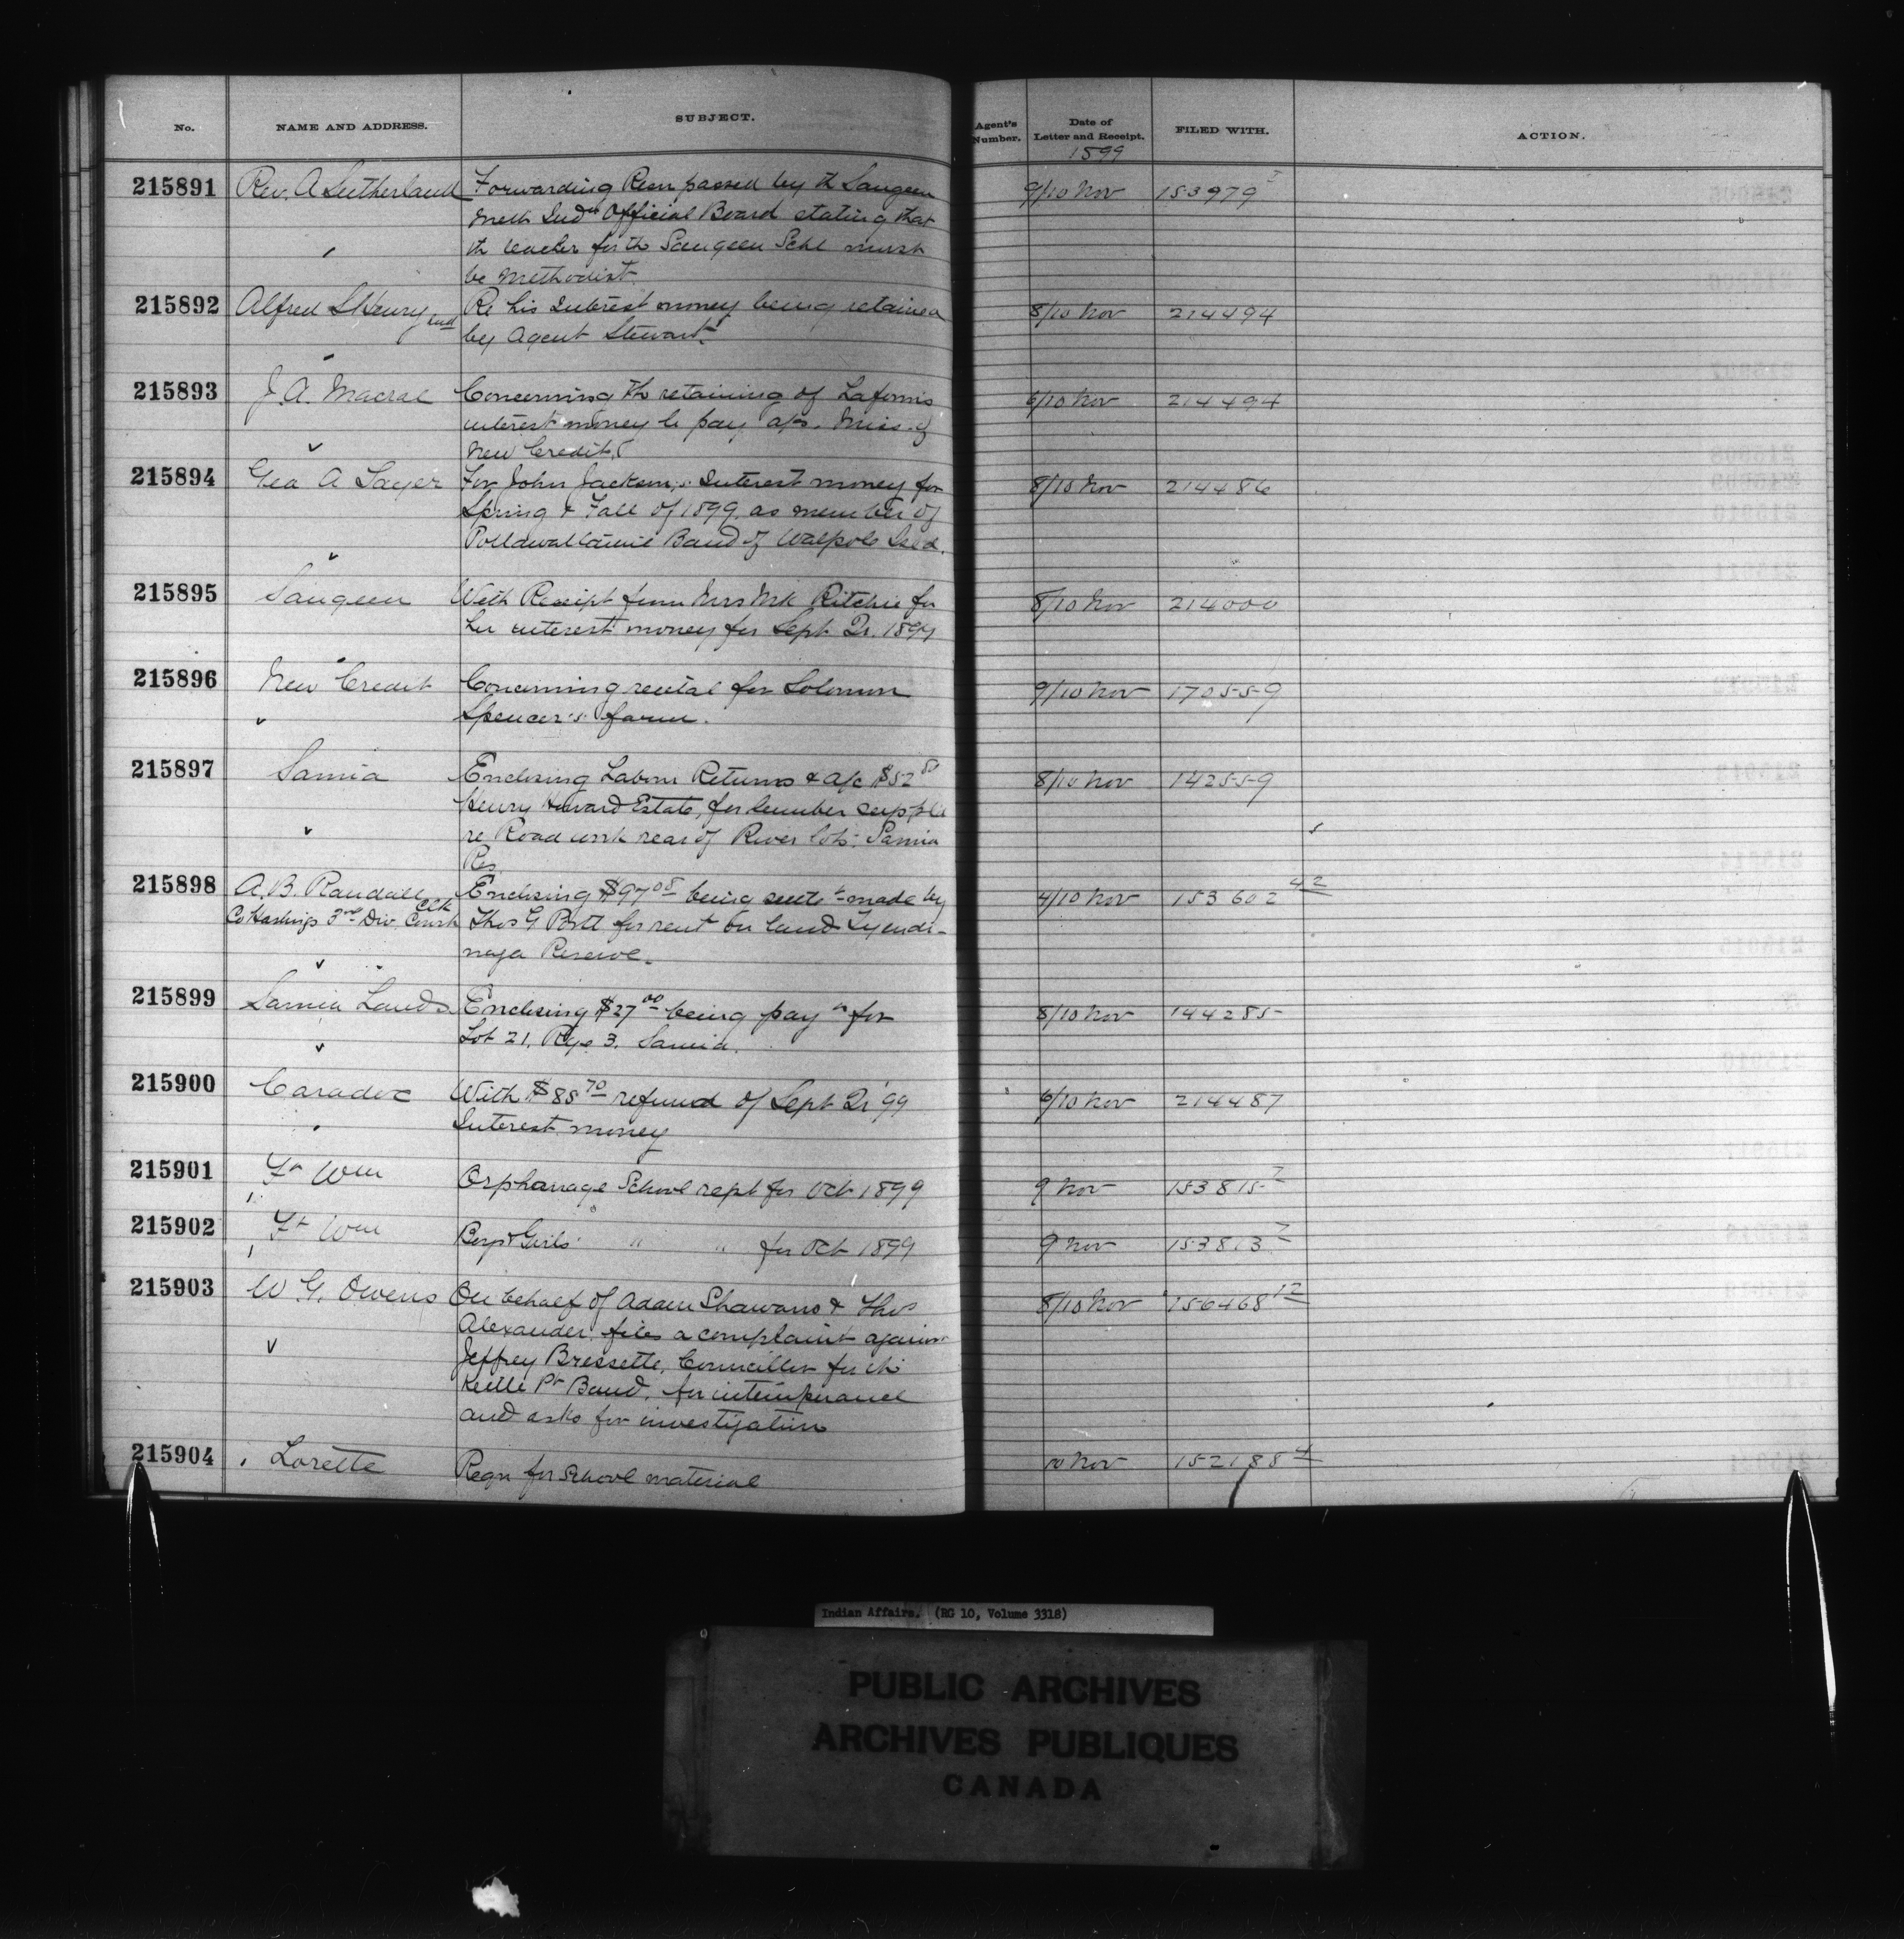 No. NAME AND ADDRESS. SUBJECT. Agent's Number. Date of Letter and Receipt. FILED WITH. ACTION.
1899
215891 Rev. A Sutherland Forwarding Resn passed by th Saugeen 9/10 Nov 153979 3
Meth Indn Official Board stating that
th teacher for th Saugeen Schl must
be Methodist
215892 Alfred S Henry Re his Interest money being retained 8/10 Nov 214494
by Agent Stewart.
215893 J. A. Macrae Concerning th retaining of Laforms 6/10 Nov 214494
interest money to pay a/cs. Miss. of
New Credit.
215894 Geo A Sayer For John Jackson's Interest money for 8/10 Nov 214486
Spring & Fall of 1899 as member of
Pottawattamie Band of Walpole Isld.
215895 Saugeen With Receipt from Mrs Wm Ritchie for 8/10 Nov 214000
her interest money for Sept Qr. 1899
215896 New Credit Concerning rental for Solomon 9/10 Nov 170559
Spencer's farm.
215897 Sarnia Enclosing Labour Returns & a/c $52 50 8/10 Nov 142559
Henry Howard Estate, for lumber suppld
re Road work rear of River lots. Sarnia
Res
215898 A. B. Randall Clk Enclosing $97 08 being settt made by 4/10 Nov 153602 42
Co Hastings 3rd Div. Court Thos G Port for rent on land Tyendi-
naga Reserve.
215899 Sarnia Lands Enclosing $27 00 being payt for 8/10 Nov 144285
Lot 21, Rge 3. Sarnia.
215900 Caradoc With $85 70 refund of Sept Qr '99 6/10 Nov 214487
Interest money
215901 Ft Wm Orphanage School rept for Oct 1899 9 Nov 153815 7
215902 Ft Wm Boys & Girls " " for Oct 1899 9 Nov 153813 7
215903 W G. Owens On behalf of Adam Shawano & Thos 8/10 Nov 156468 12
Alexander files a complaint against
Jeffrey Bressette, Councillor for th
Kettle Pt Band, for intemperance
and asks for investigation
215904 Lorette Reqn for School material 10 Nov 152188 4
Indian Affairs. (RG 10, Volume 3318)
PUBLIC ARCHIVES
ARCHIVES PUBLIQUES
CANADA